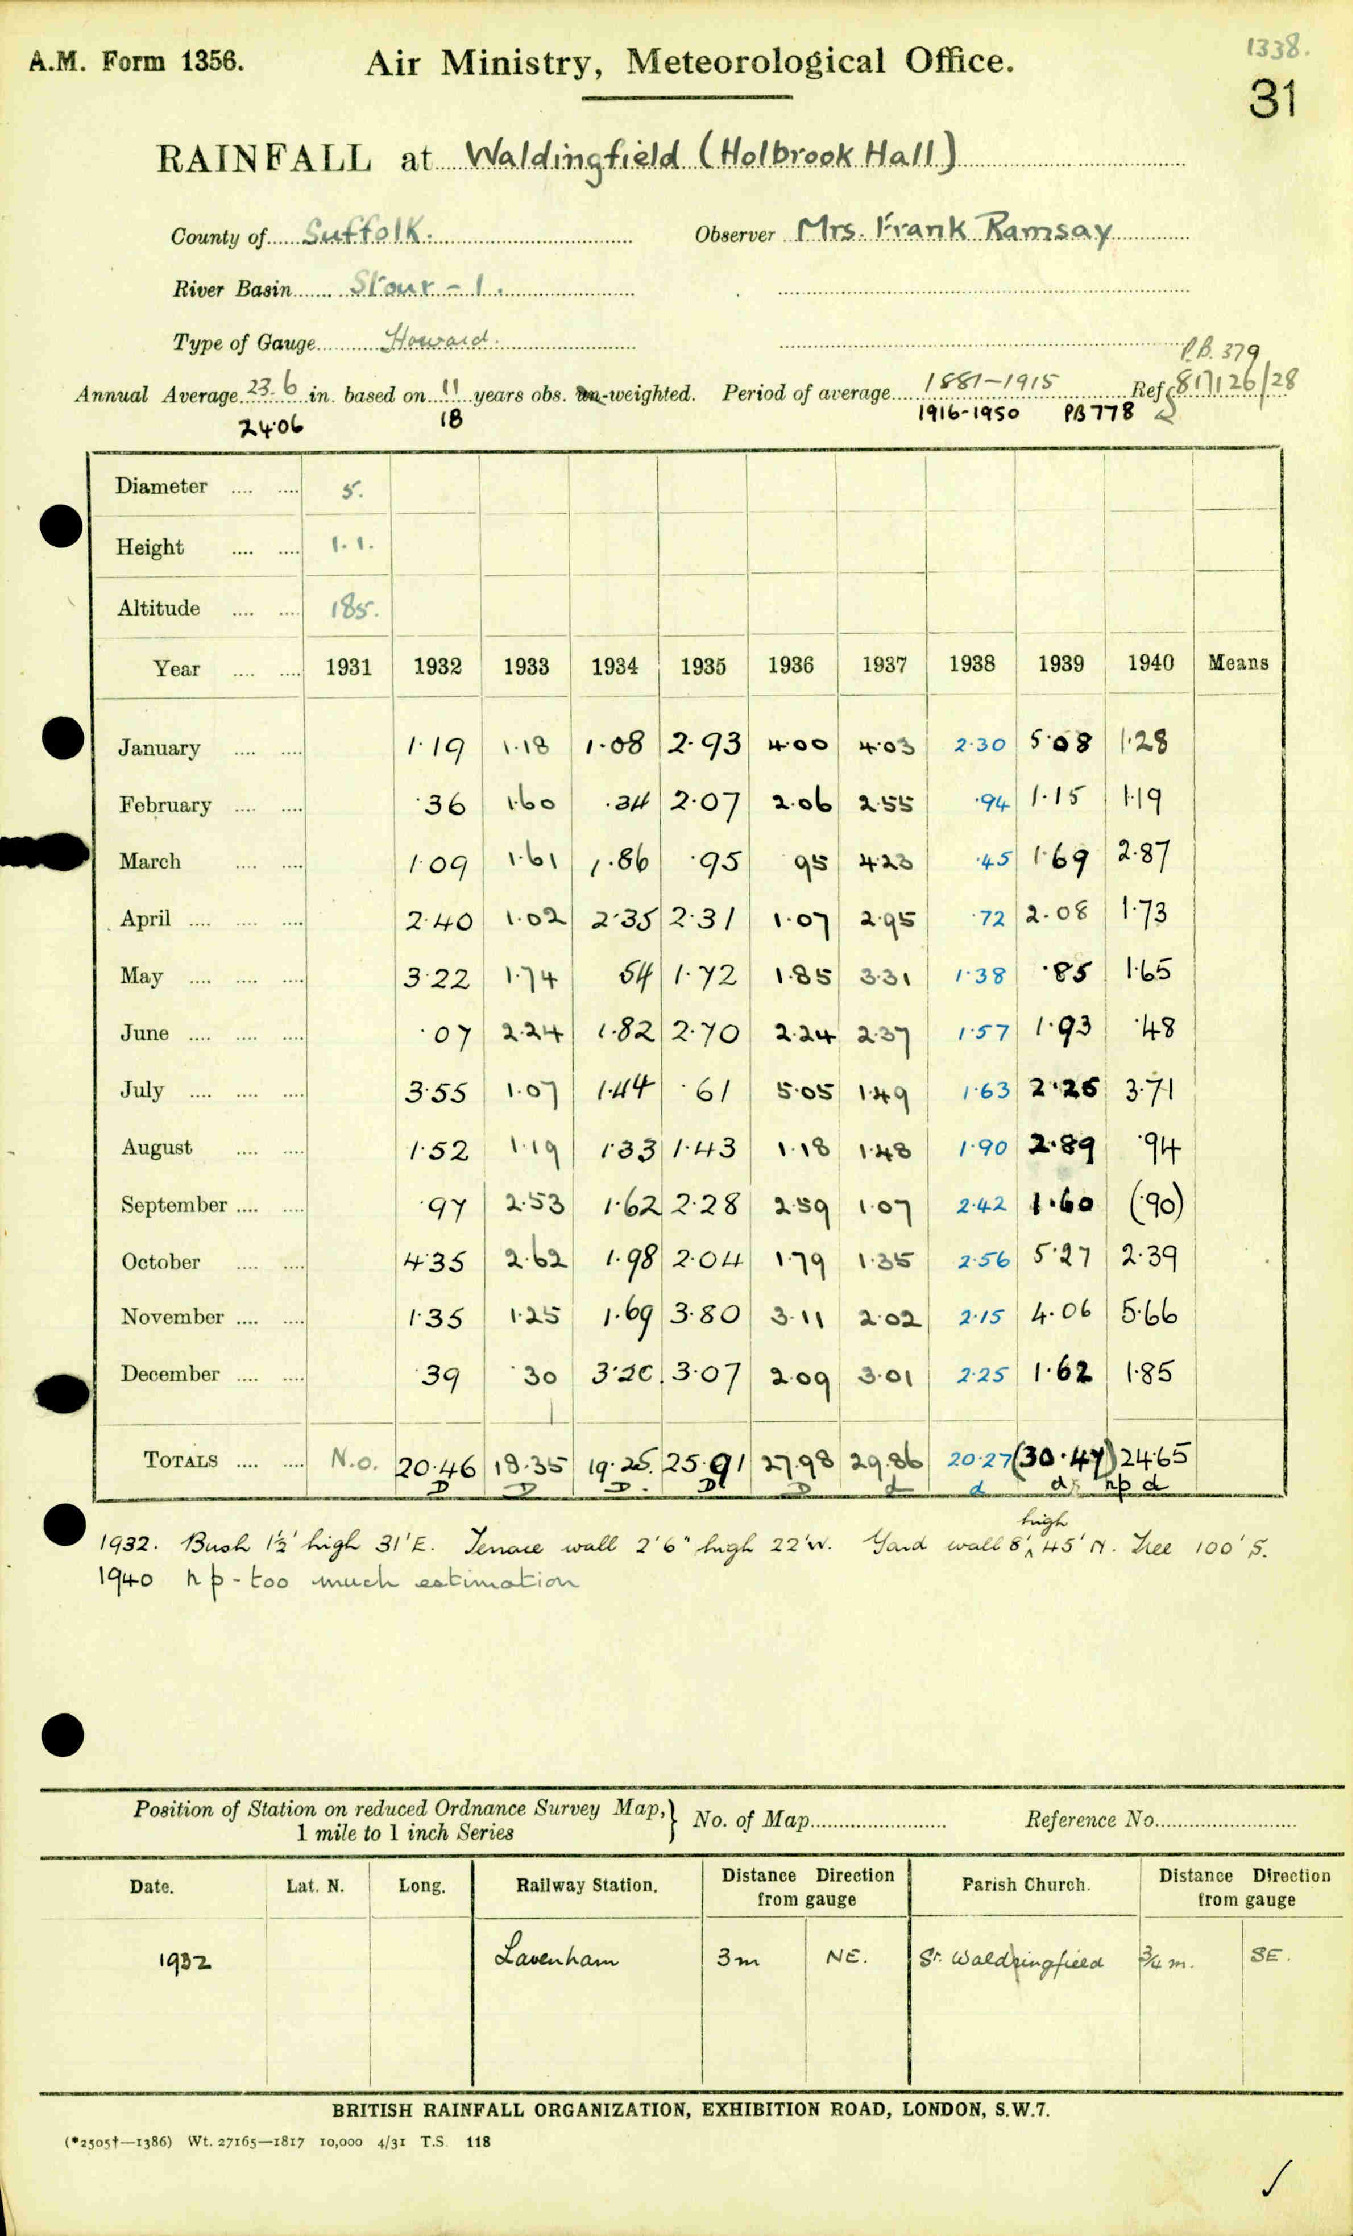 1338.
A.M. Form 1356. Air Ministry, Meteorological Office. 31
RAINFALL at Waldingfield (Holbrook Hall)
County of Suffolk. Observer Mrs. Frank Ramsay
River Basin Stour - 1.
Type of Gauge Howard.
P.B. 379
Annual Average 23.6 in. based on 11 years obs. un-weighted. Period of average 1881-1915 Ref 817126/28
24.06 18 1916-1950 PB778
Diameter .... .... 5.
Height .... .... 1.1.
Altitude .... .... 185.
Year .... .... 1931 1932 1933 1934 1935 1936 1937 1938 1939 1940 Means
January .... .... 1.19 1.18 1.08 2.93 4.00 4.03 2.30 5.08 1.28
February .... .... .36 1.60 .34 2.07 2.06 2.55 .94 1.15 1.19
March .... .... 1.09 1.61 1.86 .95 95 4.23 .45 1.69 2.87
April .... .... .... 2.40 1.02 2.35 2.31 1.07 2.95 .72 2.08 1.73
May .... .... .... 3.22 1.74 54 1.72 1.85 3.31 1.38 .85 1.65
June .... .... .... .07 2.24 1.82 2.70 2.24 2.37 1.57 1.93 .48
July .... .... .... 3.55 1.07 1.44 .61 5.05 1.49 1.63 2.25 3.71
August .... .... 1.52 1.19 1.33 1.43 1.18 1.48 1.90 2.89 .94
September .... .... .97 2.53 1.62 2.28 2.59 1.07 2.42 1.60 (.90)
October .... .... 4.35 2.62 1.98 2.04 1.79 1.35 2.56 5.27 2.39
November .... .... 1.35 1.25 1.69 3.80 3.11 2.02 2.15 4.06 5.66
December .... .... .39 .30 3.20 3.07 2.09 3.01 2.25 1.62 1.85
TOTALS .... .... N.o. 20.46 18.35 19.25 25.91 27.98 29.86 20.27 (30.47) 24.65
D D D. D D d d d np d
1932. Bush 1½' high 31' E. Terrace wall 2'6" high 22' W. Yard wall 8' high 45' N. Tree 100' S.
1940 np - too much estimation
Position of Station on reduced Ordnance Survey Map, 1 mile to 1 inch Series} No. of Map Reference No.
Date. Lat. N. Long. Railway Station. Distance Direction from gauge Parish Church. Distance Direction from gauge
1932 Lavenham 3m NE. Waldringfield ¾ m. SE.
BRITISH RAINFALL ORGANIZATION, EXHIBITION ROAD, LONDON, S.W.7.
(*2505†—1386) Wt. 27165—1817 10,000 4/31 T.S. 118